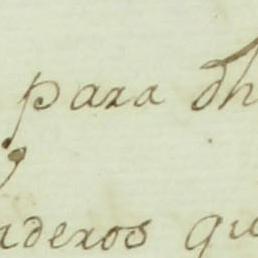 para dh
aderos qu